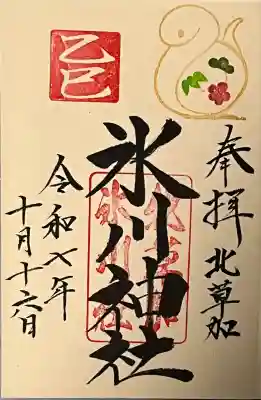 奉拝 北草加
乙巳
氷川神社
令和七年
十月十六日